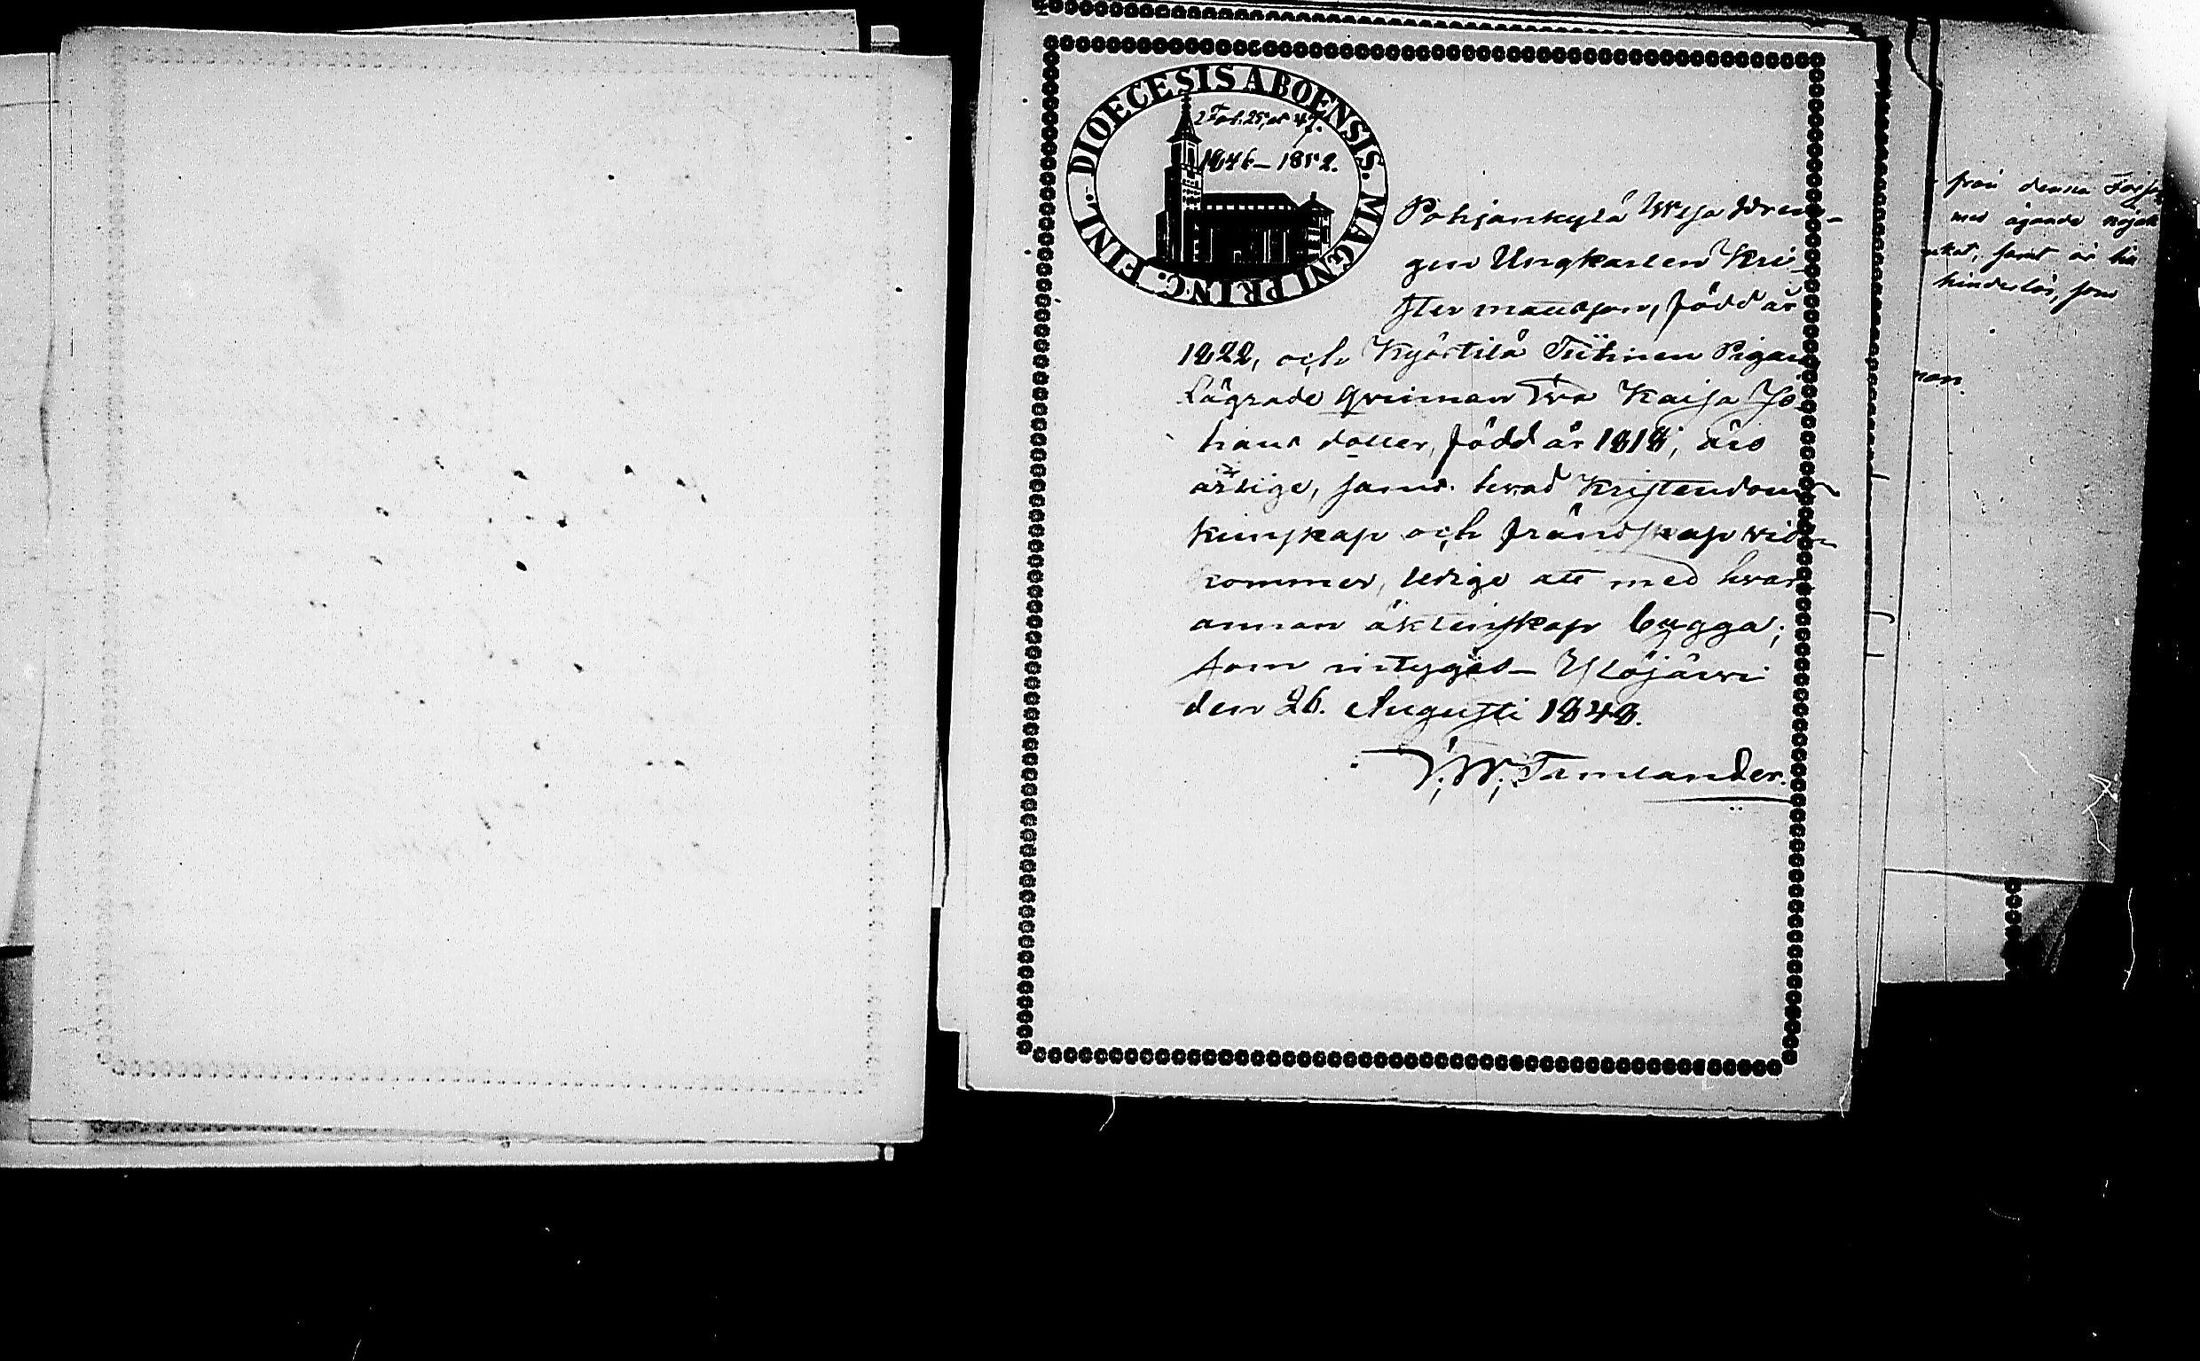 DIOECESIS ABOENSIS. MAGNI PRINC. FINL.
Fol. 25, et 47.
1846–1852.
Pohjankylä Drän-
gen Ungkarlen Kri-
ster mansson, född år
1822, och Kyöstilä Pigan
Lägrade Qvinnan Kaisa Jo-
hans dotter, född år 1818, äro
ärlige, samt hvad Kristendoms
kunskap och frändskap vid-
kommer, ledige att med hvar
annan äktenskap bygga;
som intygas Ylöjärvi
den 26. Augusti 1848.
W. Tamlander.
från denna Förs
med ägande
samt är
hinderlös, som